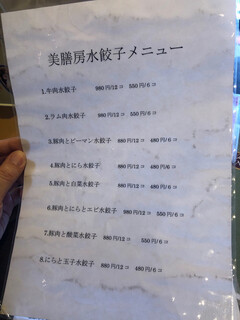 美膳房水餃子メニュー
1.牛肉水餃子 980円/12コ 550円/6コ
2.ラム肉水餃子 980円/12コ 550円/6コ
3.豚肉とピーマン水餃子 880円/12コ 480円/6コ
4.豚肉とにら水餃子 880円/12コ 480円/6コ
5.豚肉と白菜水餃子 880円/12コ 480円/6コ
6.豚肉とにらとエビ水餃子 980円/12コ 550円/6コ
7.豚肉と酸菜水餃子 980円/12コ 550円/6コ
8.にらと玉子水餃子 880円/12コ 480円/6コ